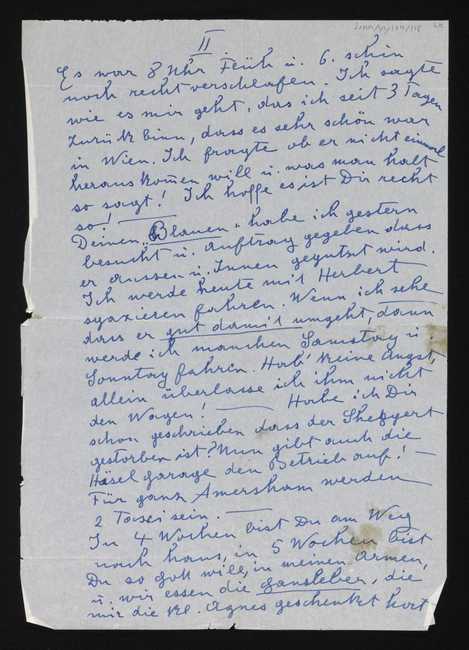 II.
Es war 8 Uhr Früh u. G. schin
noch recht verschlafen. Ich sagte
wie es mir geht, das ich seit 3 Tagen
zurück binn, dass es sehr schön war
in Wien. Ich fragte ob er nicht einmal
herauskom̄en will u. was man halt
so sagt! Ich hoffe es ist Dir recht
so! —
Deinen „Blauen" habe ich gestern
besucht u. Auftrag gegeben dass
er Aussen u. Innen geputzt wird.
Ich werde heute mit Herbert
spazieren fahren. Wenn ich sehe
dass er gut damit umgeht, dann
werde ich manchen Samstag u.
Sonntag fahren. Hab' keine Angst,
allein überlasse ich ihm nicht
den Wagen! — Habe ich Dir
schon geschrieben dass der
gestorben ist? Nun gibt auch die
Häsel garage den Betrieb auf! —
Für ganz Amersham werden
2 Taxi sein. —
In 4 Wochen bist Du am Weg
nach haus, in 5 Wochen bist
Du so Gott will, in meinen Armen,
u. wir essen die Gansleber, die
mir die kl. Agnes geschenkt hart